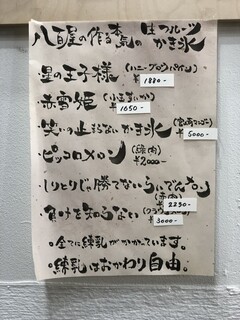 八百屋の作る本気の生フルーツかき氷
星の王子様（ハニーグロウパイン）
¥1880-
赤雪姫（小玉すいか）
¥1650-
笑いの止まらないかき氷（宮古マンゴー）
¥5000-
ピッコロメロン（緑肉）
¥2000-
しりとりに勝てないらいでんメロン（赤肉）
¥2230-
負けを知らない（クラウンメロン）
¥3000-
。全てに練乳がかかっています。
。練乳はおかわり自由。